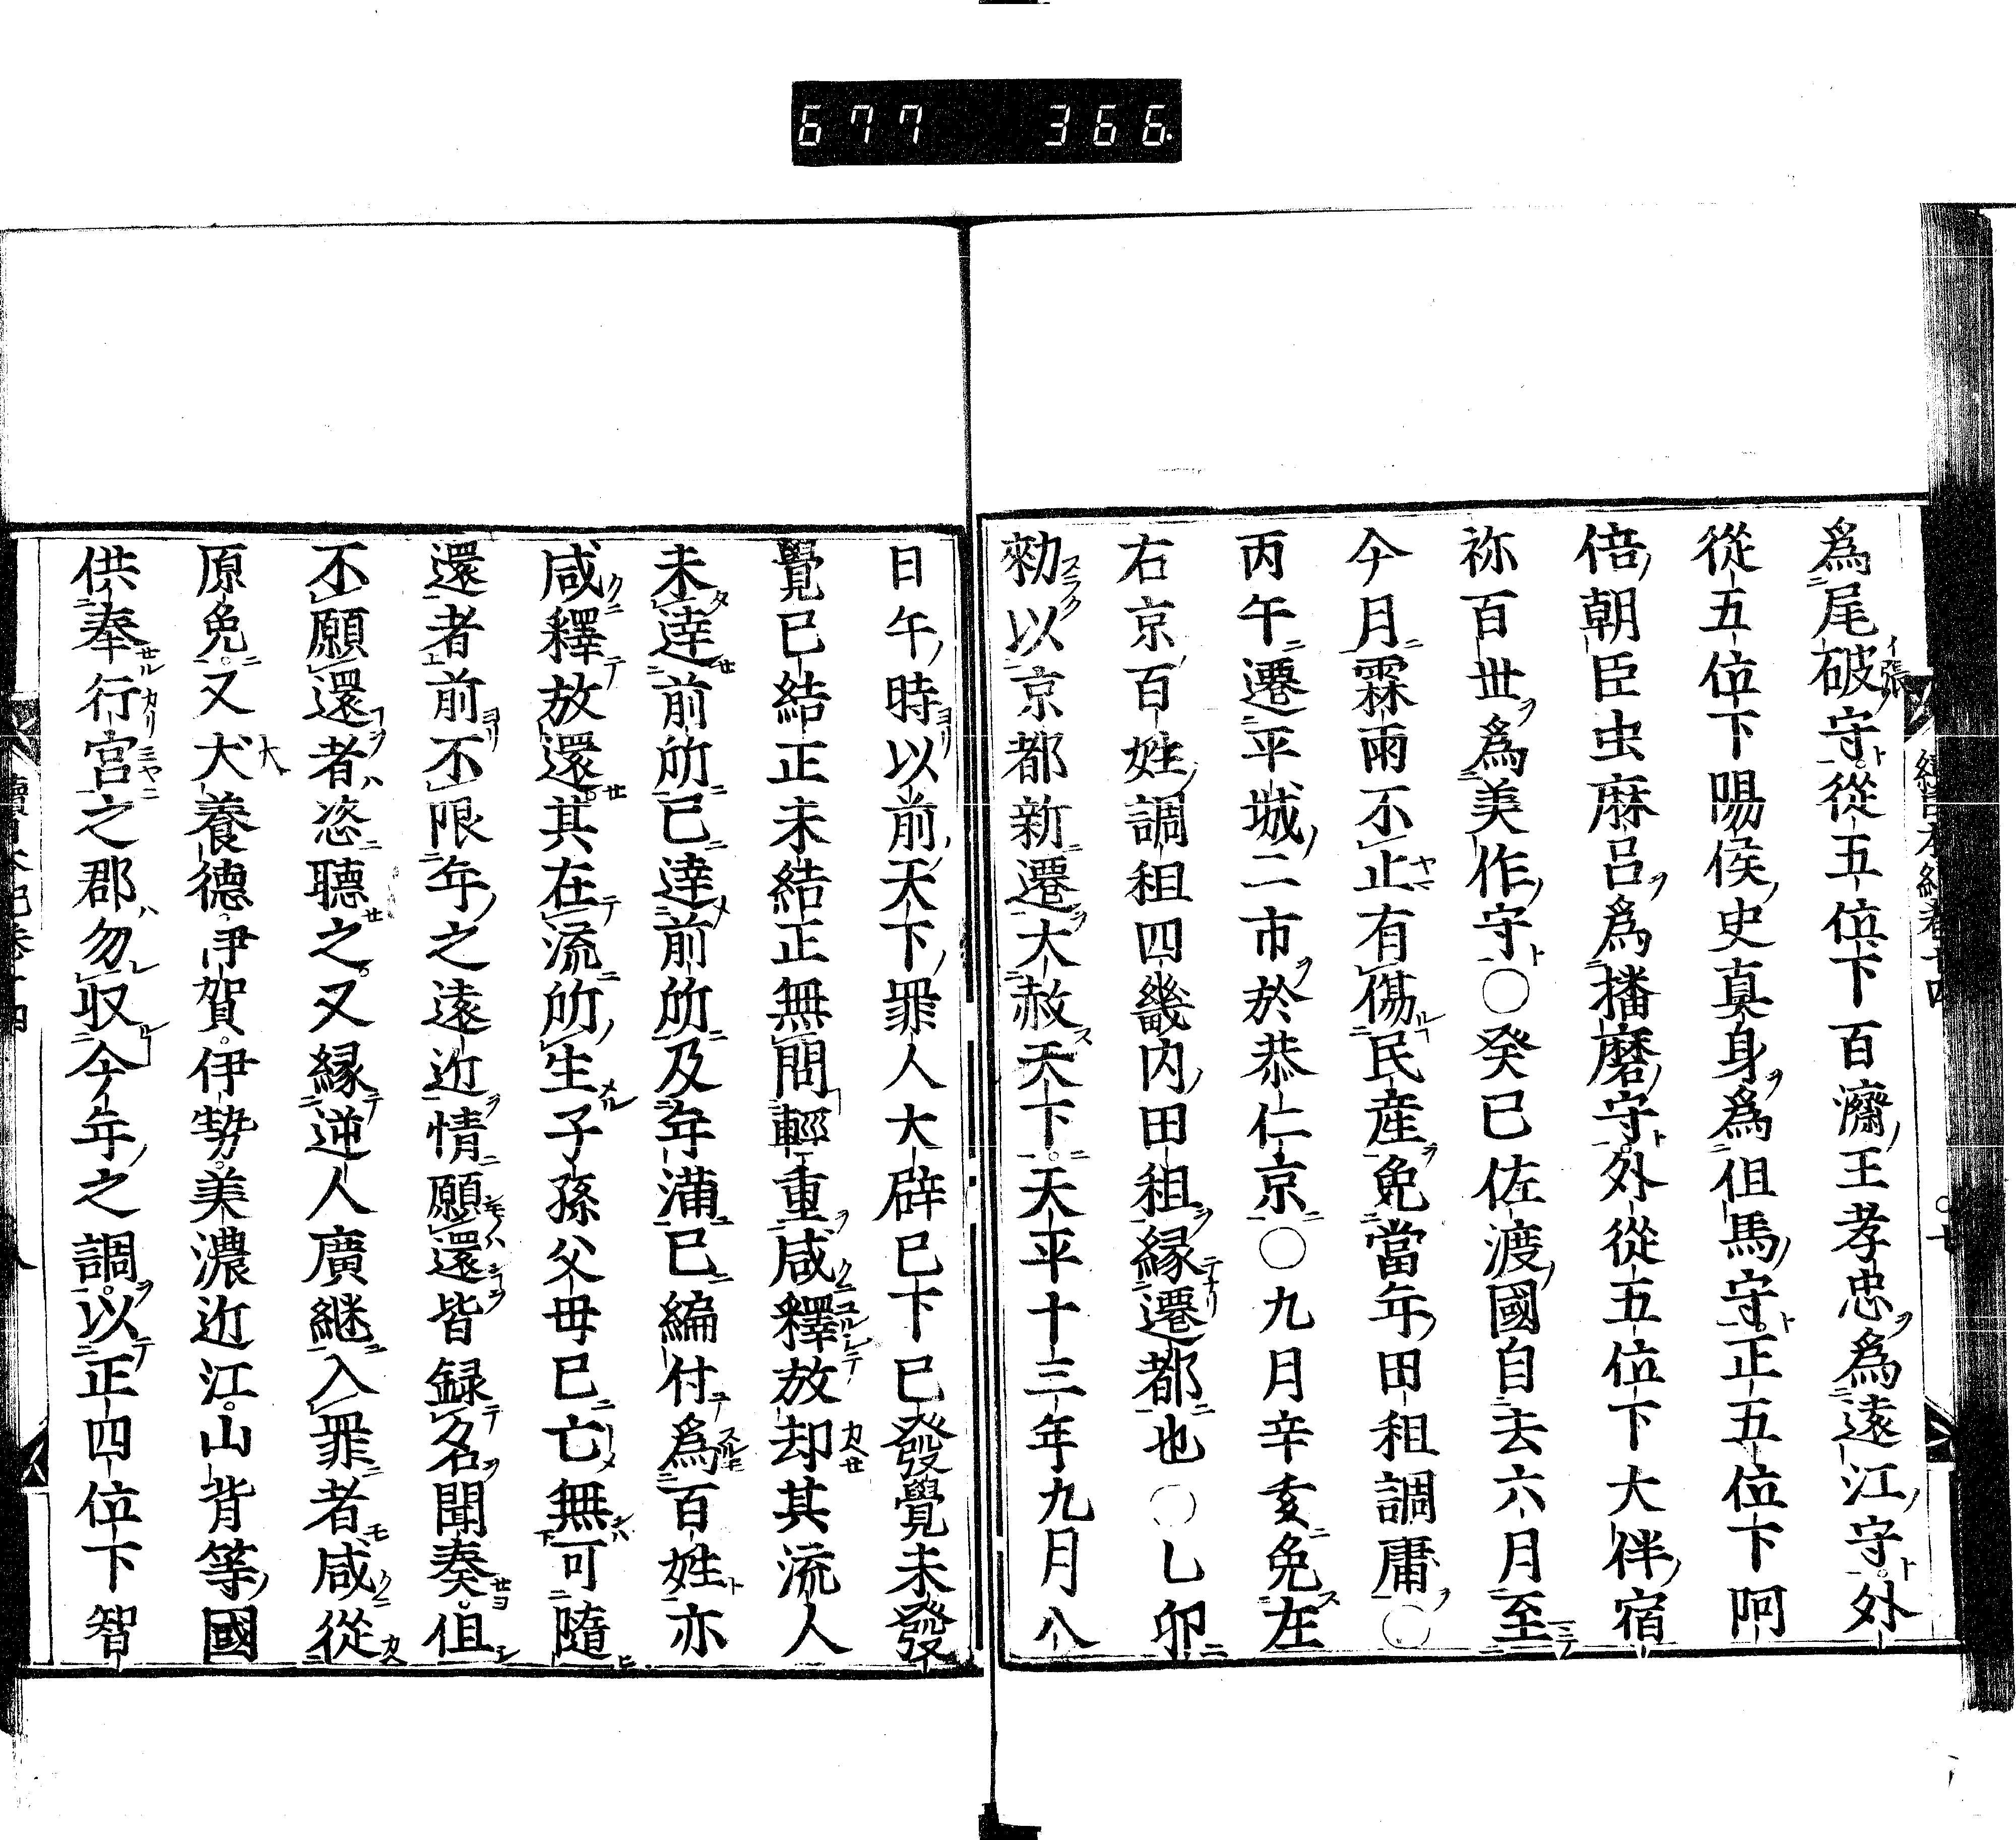 677 366
為尾破守從五位下百濟王孝忠為遠江守外
從五位下陽侯史真身為但馬守正五位下阿
倍朝臣虫麻呂為播磨守外從五位下大伴宿
祢百世為美作守○癸巳佐渡國自去六月至
今月霖雨不止有傷民產免當年田租調庸○
丙午遷平城二市於恭仁京○九月辛亥免左
右京百姓調租四畿内田租縁遷都也○乙卯
勑以京都新遷大赦天下天平十三年九月八
日午時以前天下罪人大辟已下已發覺未發
覺已結正未結正無問輕重咸釋放却其流人
未達前所已達前所及年滿已編付為百姓亦
咸釋放還其在流所生子孫父母已亡無可隨
還者前不限年之遠近情願還皆録名聞奏但
不願還者恣聽之又縁逆人廣継入罪者咸從
原免又犬養德伊賀伊勢美濃近江山背等國
供奉行宮之郡勿収今年之調以正四位下智